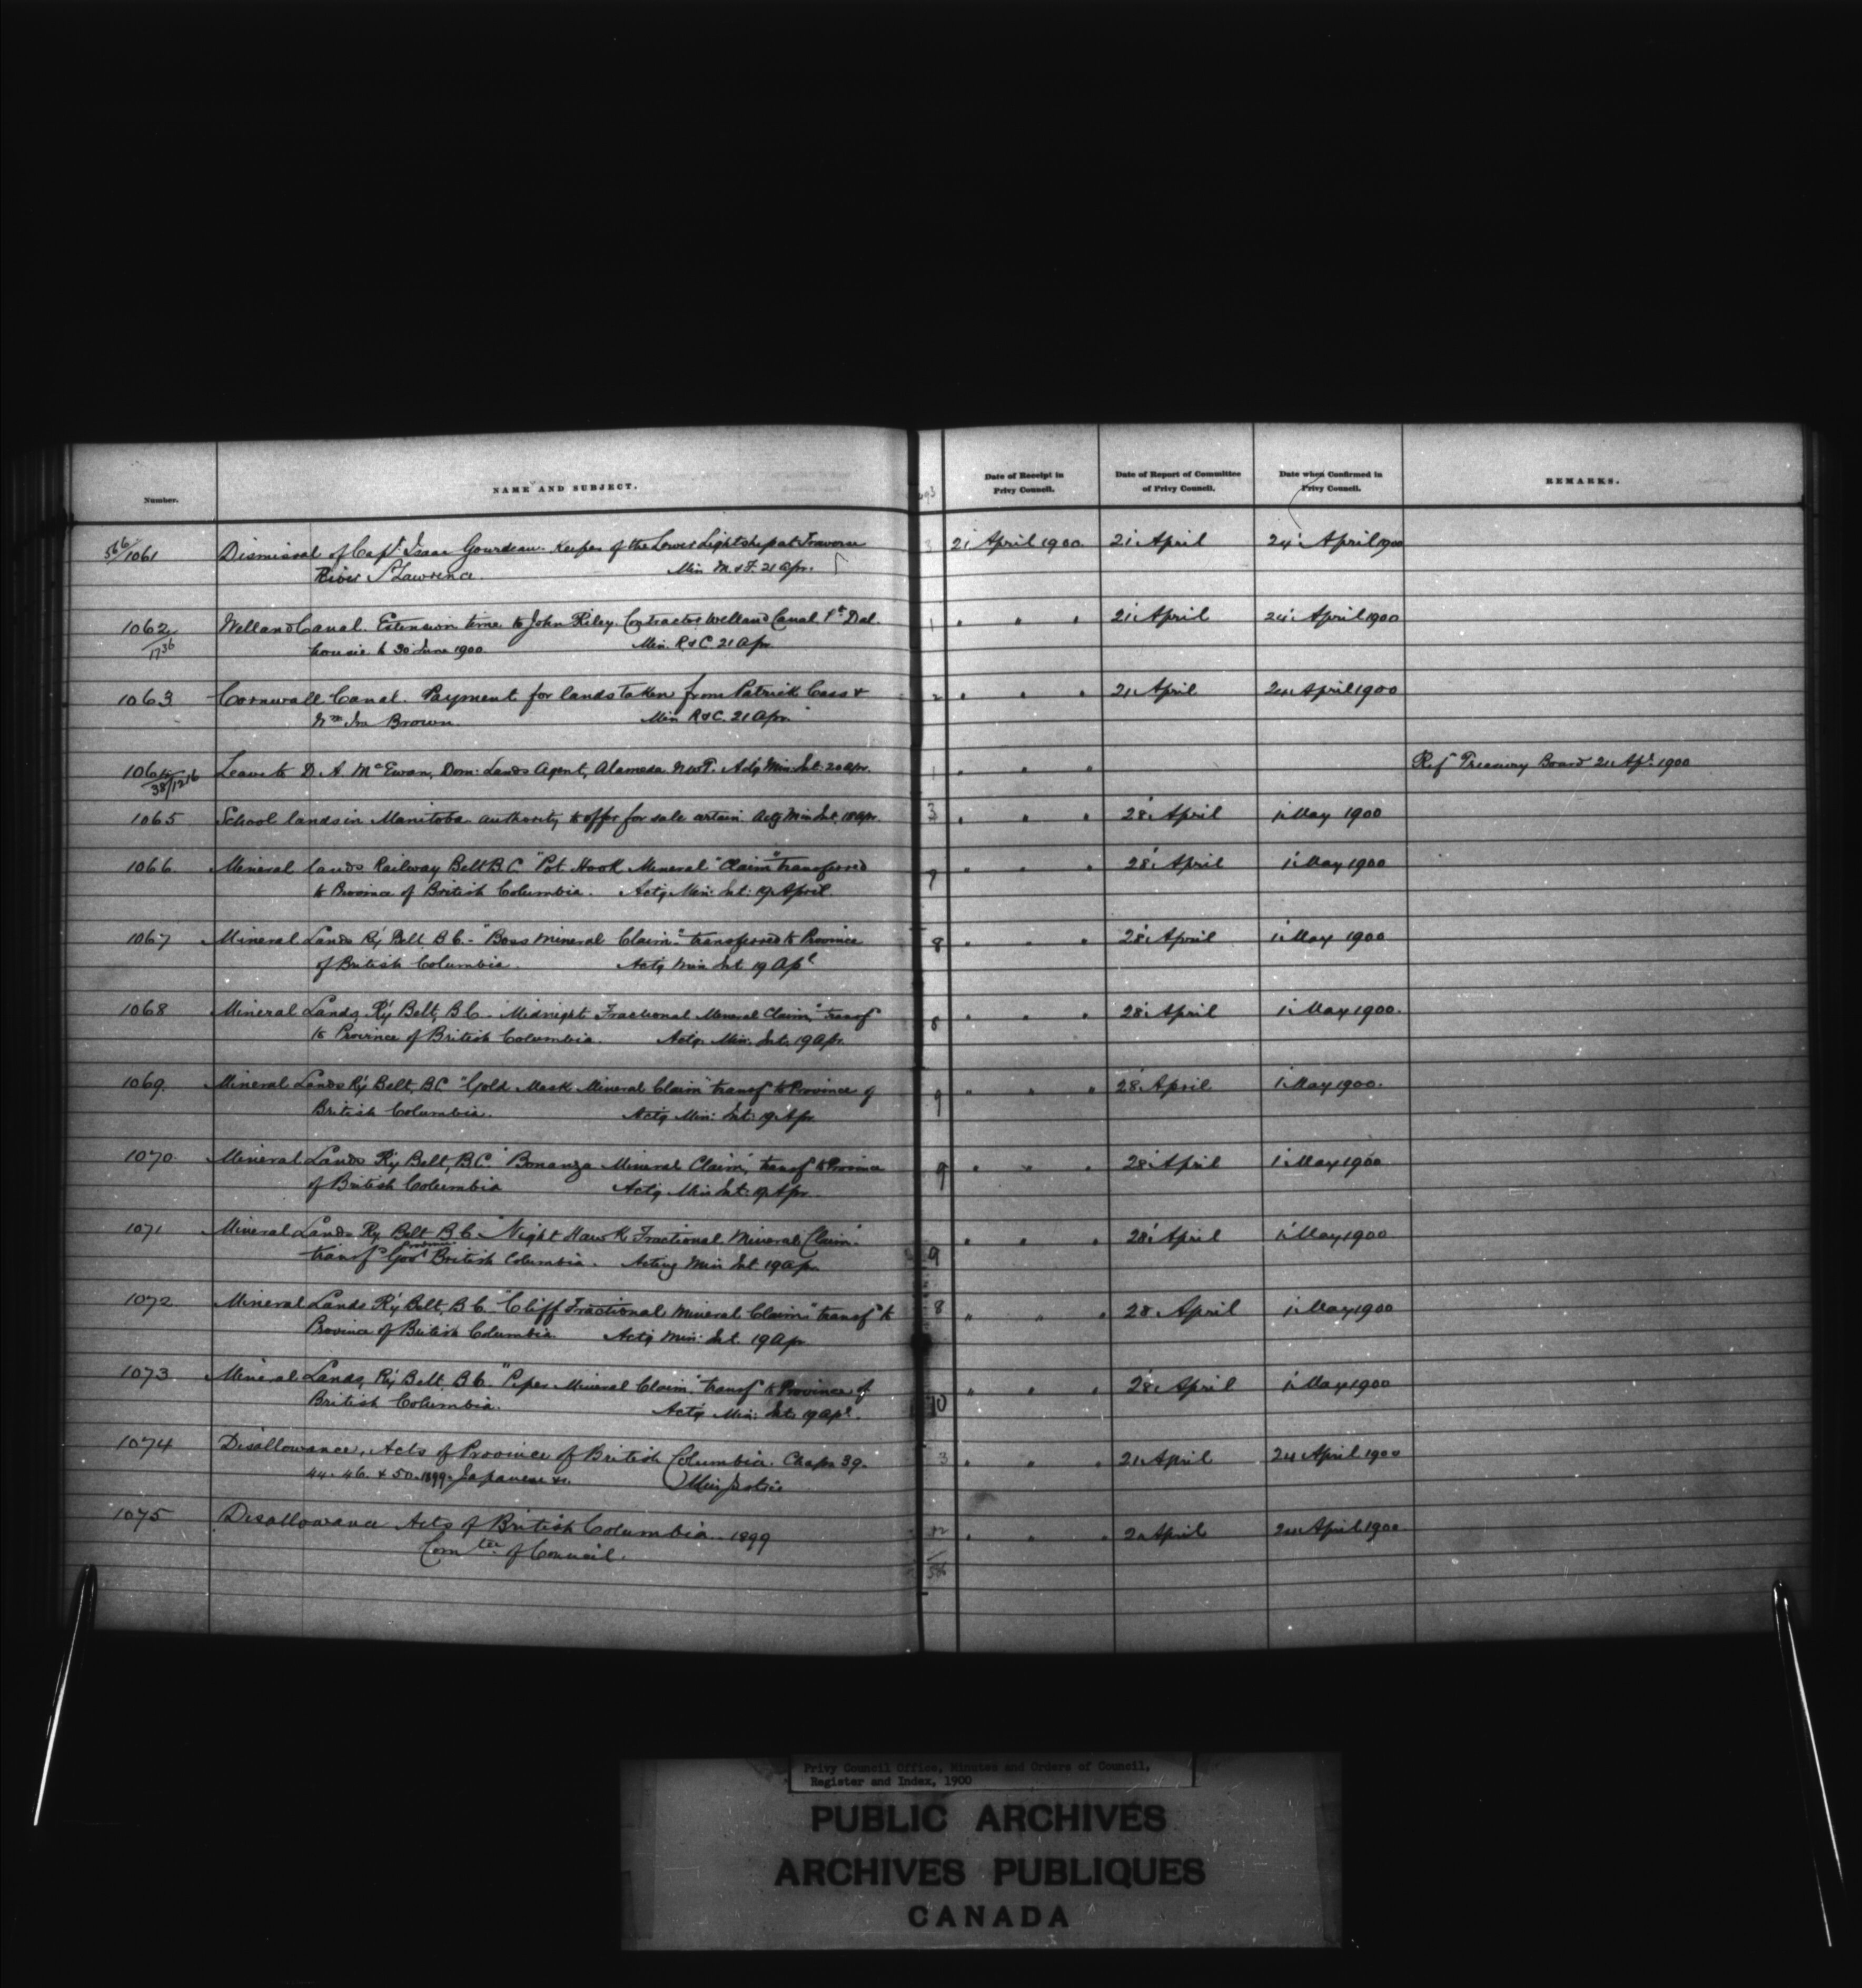 Number.
NAME AND SUBJECT.
Date of Receipt in
Privy Council.
Date of Report of Committee
of Privy Council.
Date when Confirmed in
Privy Council.
REMARKS.
566/1061 Dismissal of Capt. Isaac Gourdeau. Keeper of the Lower Lightship at Traverse 3 21 April 1900 21 April 24 April 1900
River St Lawrence. Min M. & F. 21 Apr.
1062 Welland Canal. Extension time to John Riley, Contractor Welland Canal Pt Dal 1 " " " 21 April 24 April 1900
1736 housie to 30 June 1900 Min. R. & C. 21 Apr
1063 Cornwall Canal. Payment for lands taken from Patrick Cass & 2 " " " 21 April 24 April 1900
Wm Brown. Min R & C. 21 Apr.
1064 Leave to D. A. McEwan, Dom: Lands Agent, Alameda NWT. Actg Min Int: 20 Apr. 1 " " " Ref Treasury Board 21 Apl 1900
38/1216
1065 School lands in Manitoba authority to offer for sale certain. Actg Min Int. 18 Apr. 3 " " " 28 April 1 May 1900
1066. Mineral lands Railway Belt B.C. "Pot Hook Mineral "Claim" transferred 7 " " " 28 April 1 May 1900
to Province of British Columbia. Actg Min: Int: 19 April.
1067 Mineral Lands Ry Belt B.C. - "Boss Mineral Claim" transferred to Province 8 " " " 28 April 1 May 1900
of British Columbia. Actg Min Int 19 Apl
1068 Mineral Lands, Ry Belt, B.C. "Midnight Fractional Mineral Claim," transf 8 " " " 28 April 1 May 1900.
to Province of British Columbia. Actg. Min. Int. 19 Apr.
1069. Mineral Lands Ry Belt, B.C. "Gold Mask Mineral Claim" transf to Province of 9 " " " 28 April 1 May 1900.
British Columbia. Actg Min: Int: 19 Apr
1070. Mineral Lands Ry Belt, B.C. "Bonanza Mineral Claim", transf to Province 9 " " " 28 April 1 May 1900
of British Columbia Actg Min Int: 19 Apr.
1071 Mineral Lands Ry Belt B.C. "Night Hawk Fractional Mineral Claim" 9 " " " 28 April 1 May 1900
transf British Columbia. Acting Min Int 19 Apr
1072 Mineral Lands Ry Belt, B.C. "Cliff Fractional Mineral Claim" transf to 8 " " " 28 April 1 May 1900
Province of British Columbia Actg Min: Int. 19 Apr
1073 Mineral Lands, Ry Belt B.C. "Piper Mineral Claim," transf to Province of 10 " " " 28 April 1 May 1900
British Columbia. Actg Min: Int. 19 Apl.
1074 Disallowance, Acts of Province of British Columbia. Chaps 39. 3 " " " 21 April 24 April 1900
44. 46. & 50. 1899. Japanese &c. Min Justice
1075 Disallowance Acts of British Columbia 1899 " " " 21 April 24 April 1900
Comtee of Council.
Privy Council Office, Minutes and Orders of Council,
Register and Index, 1900
PUBLIC ARCHIVES
ARCHIVES PUBLIQUES
CANADA